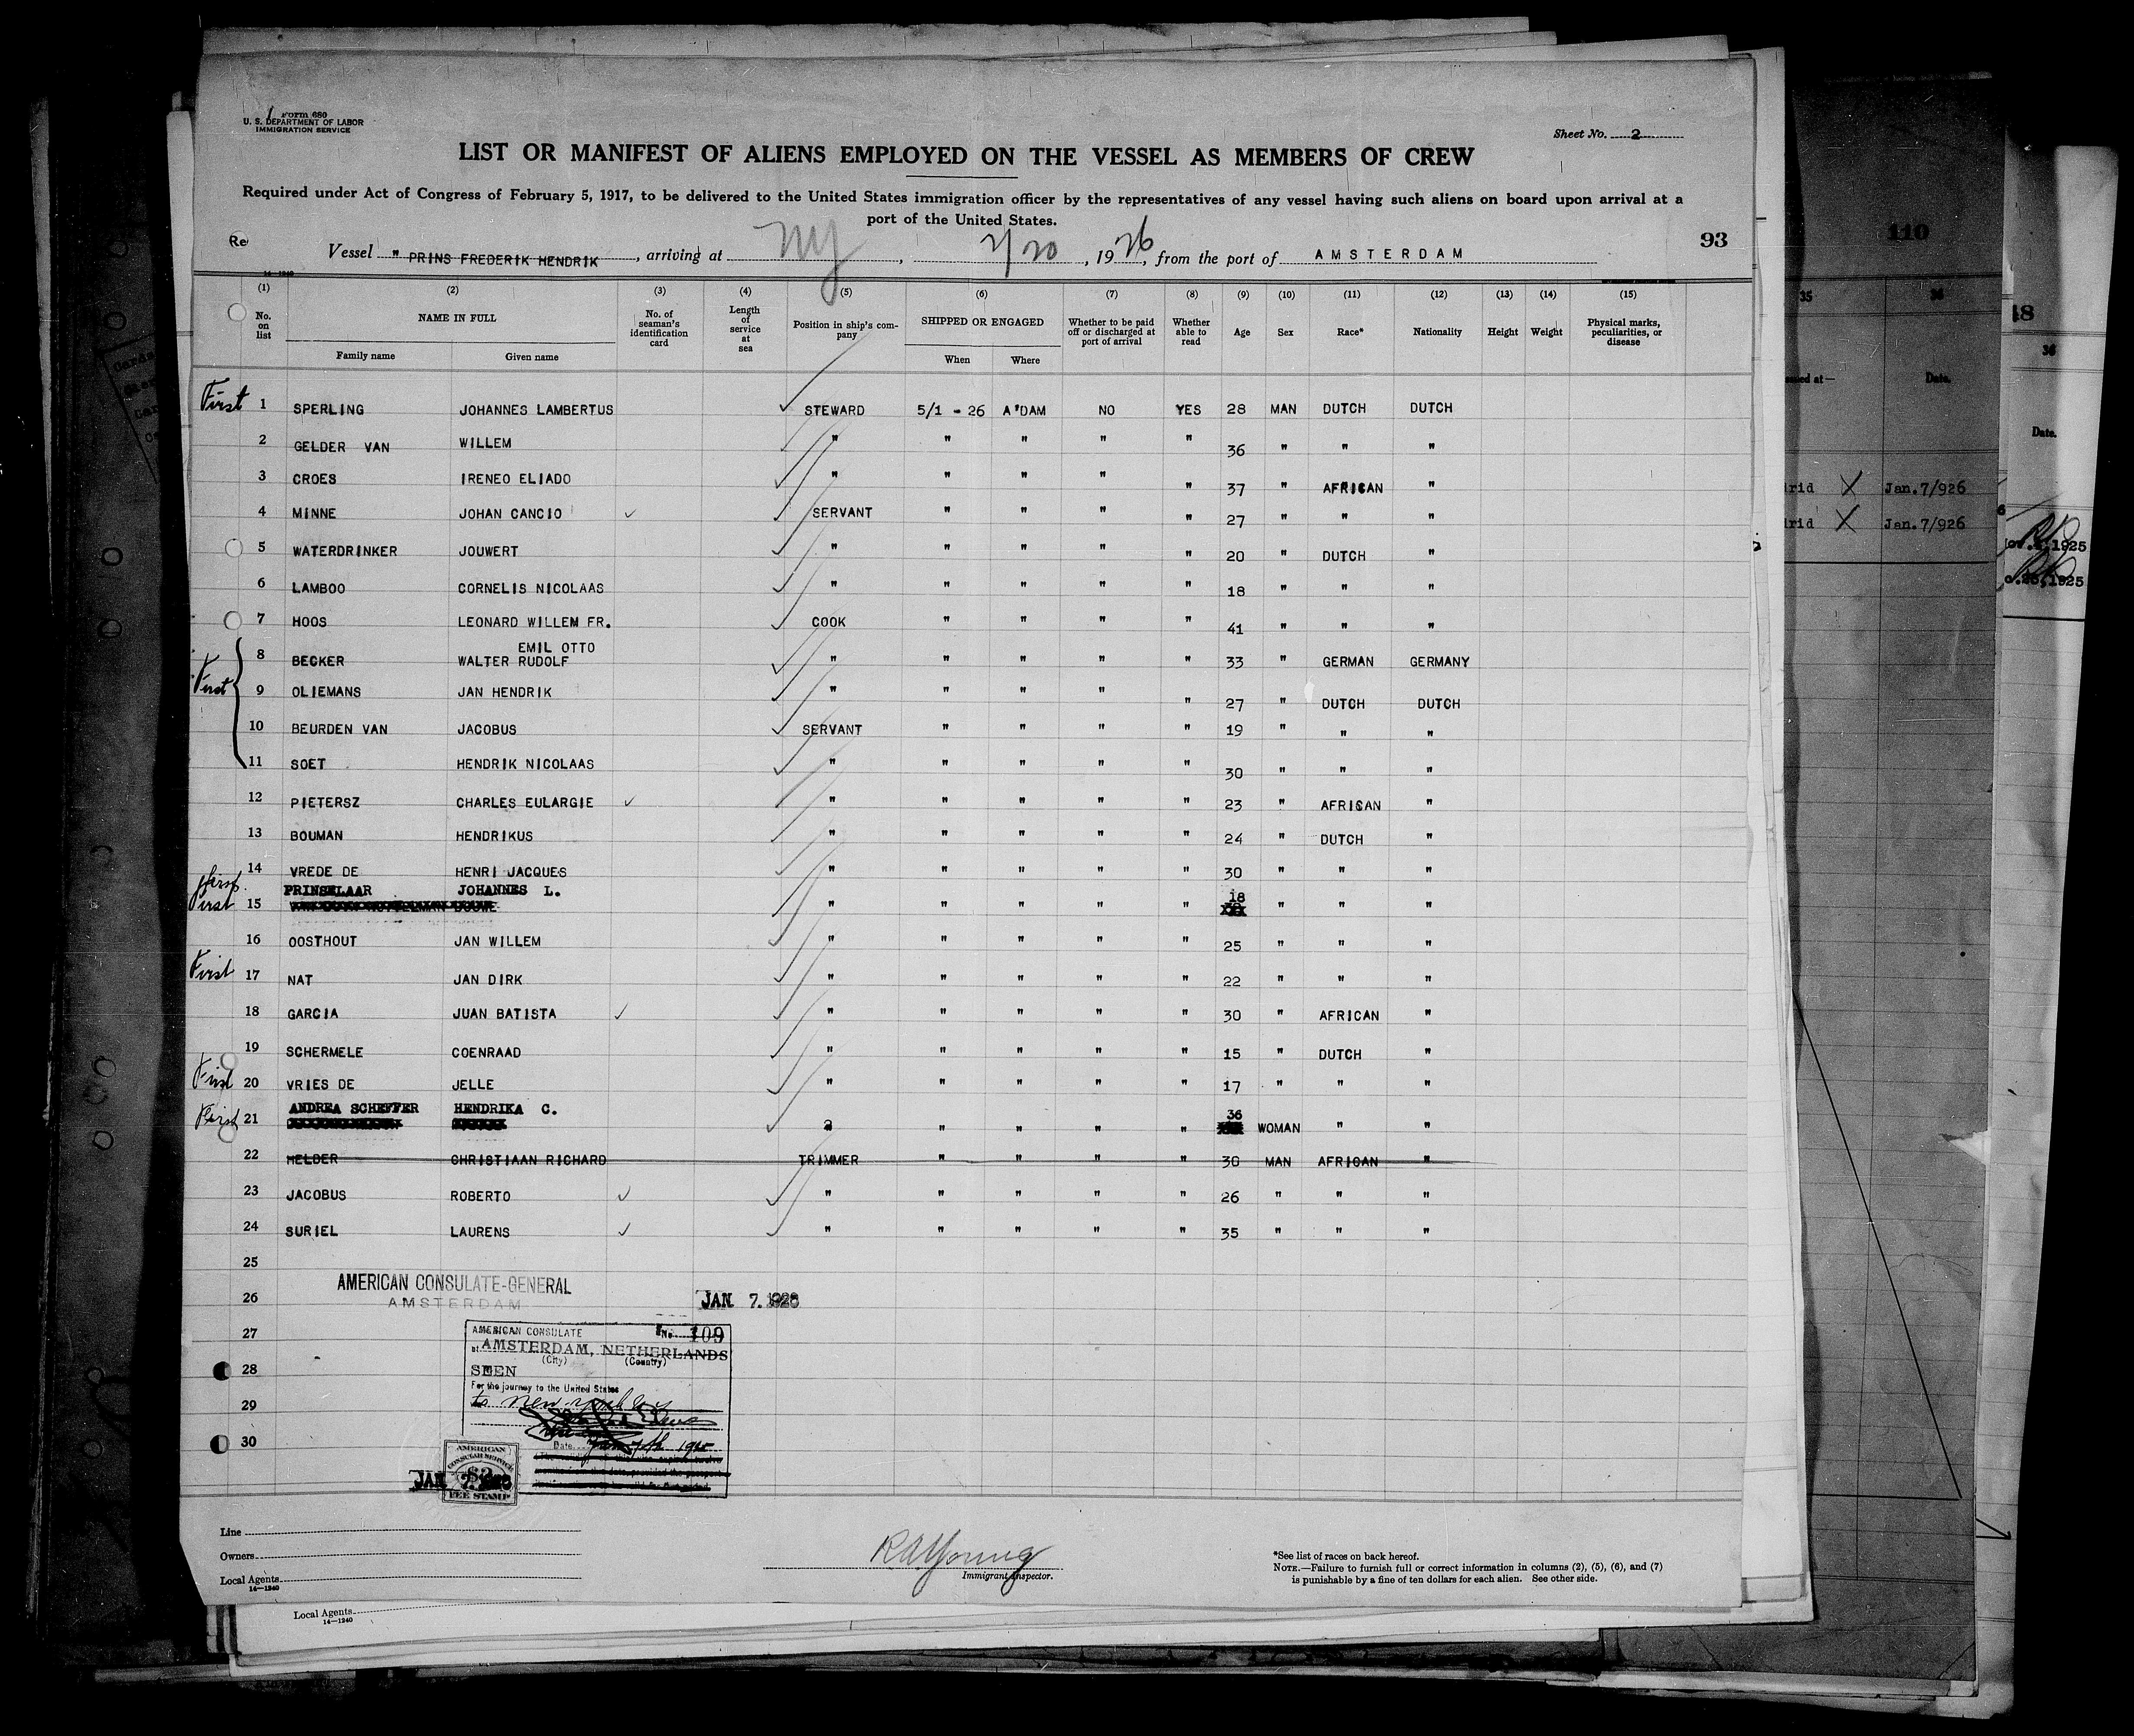 Form 680
U. S. DEPARTMENT OF LABOR
IMMIGRATION SERVICE
Sheet No. 2
LIST OR MANIFEST OF ALIENS EMPLOYED ON THE VESSEL AS MEMBERS OF CREW
Required under Act of Congress of February 5, 1917, to be delivered to the United States immigration officer by the representatives of any vessel having such aliens on board upon arrival at a
port of the United States.
Re
93
Vessel " PRINS FREDERIK HENDRIK, arriving at NY, 2/20, 1926, from the port of AMSTERDAM
14-1240
(1) (2) (3) (4) (5) (6) (7) (8) (9) (10) (11) (12) (13) (14) (15)
No. on list NAME IN FULL Family name Given name No. of seaman's identification card Length of service at sea Position in ship's company SHIPPED OR ENGAGED When Where Whether to be paid off or discharged at port of arrival Whether able to read Age Sex Race* Nationality Height Weight Physical marks, peculiarities, or disease
First 1 SPERLING JOHANNES LAMBERTUS ✓ STEWARD 5/1 - 26 A'DAM NO YES 28 MAN DUTCH DUTCH
2 GELDER VAN WILLEM ✓ " " " " " 36 " " "
3 CROES IRENEO ELIADO ✓ " " " " " 37 " AFRICAN "
4 MINNE JOHAN CANCIO ✓ ✓ SERVANT " " " " 27 " " "
5 WATERDRINKER JOUWERT ✓ " " " " " 20 " DUTCH "
6 LAMBOO CORNELIS NICOLAAS ✓ " " " " " 18 " " "
7 HOOS LEONARD WILLEM FR. ✓ COOK " " " " 41 " " "
EMIL OTTO
8 BECKER WALTER RUDOLF ✓ " " " " " 33 " GERMAN GERMANY
First 9 OLIEMANS JAN HENDRIK ✓ " " " " " 27 " DUTCH DUTCH
10 BEURDEN VAN JACOBUS ✓ SERVANT " " " " 19 " " "
11 SOET HENDRIK NICOLAAS ✓ " " " " " 30 " " "
12 PIETERSZ CHARLES EULARGIE ✓ ✓ " " " " " 23 " AFRICAN "
13 BOUMAN HENDRIKUS ✓ " " " " " 24 " DUTCH "
First 14 VREDE DE HENRI JACQUES ✓ " " " " " 30 " " "
PRINSELAAR JOHANNES L. 18
First 15 ✓ " " " " " " " "
16 OOSTHOUT JAN WILLEM ✓ " " " " " 25 " " "
First 17 NAT JAN DIRK ✓ " " " " " 22 " " "
18 GARCIA JUAN BATISTA ✓ ✓ " " " " " 30 " AFRICAN "
19 SCHERMELE COENRAAD ✓ " " " " " 15 " DUTCH "
First 20 VRIES DE JELLE ✓ " " " " " 17 " " "
ANDREA SCHEFFER HENDRIKA C. 36
First 21 ✓ " " " " " WOMAN " "
22 HELDER CHRISTIAAN RICHARD TRIMMER " " " " 30 MAN AFRICAN "
23 JACOBUS ROBERTO ✓ ✓ " " " " " 26 " " "
24 SURIEL LAURENS ✓ ✓ " " " " " 35 " " "
25
AMERICAN CONSULATE-GENERAL
26 AMSTERDAM JAN 7. 1926
27 AMERICAN CONSULATE No. 109
at AMSTERDAM, NETHERLANDS
(City) (Country)
28 SEEN
For the journey to the United States
29 to New York
30 Date Jan 7th 192
AMERICAN
CONSULAR SERVICE
$2
FEE STAMP
JAN 7
Line
Owners
Local Agents
14-1240
RA Young
Immigrant Inspector.
*See list of races on back hereof.
NOTE.—Failure to furnish full or correct information in columns (2), (5), (6), and (7)
is punishable by a fine of ten dollars for each alien. See other side.
Local Agents
14-1240
110
35 36
Date.
rid X Jan.7/926
rid X Jan.7/926
18
36
Date.
1925
1925